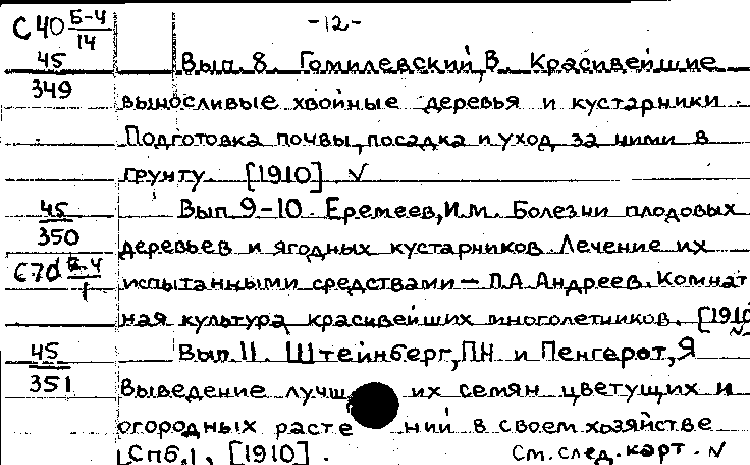 С40 Б-4/14 -12-
45/349 Вып. 8. Гомилевский, В. Красивейшие
выносливые хвойные деревья и кустарники.
Подготовка почвы, посадка и уход за ними в
грунту. [1910]. √
45/350 Вып 9-10. Еремеев, И.М. Болезни плодовых
деревьев и ягодных кустарников. Лечение их
испытанными средствами — П.А. Андреев. Комнат
ная культура красивейших многолетников. [1910
45/351 Вып. 11. Штейнберг, П.Н и Пенгерот, Я
Выведение лучш их семян цветущих и
огородных расте ний в своем хозяйстве
[Спб.], [1910]. См. след. карт. √